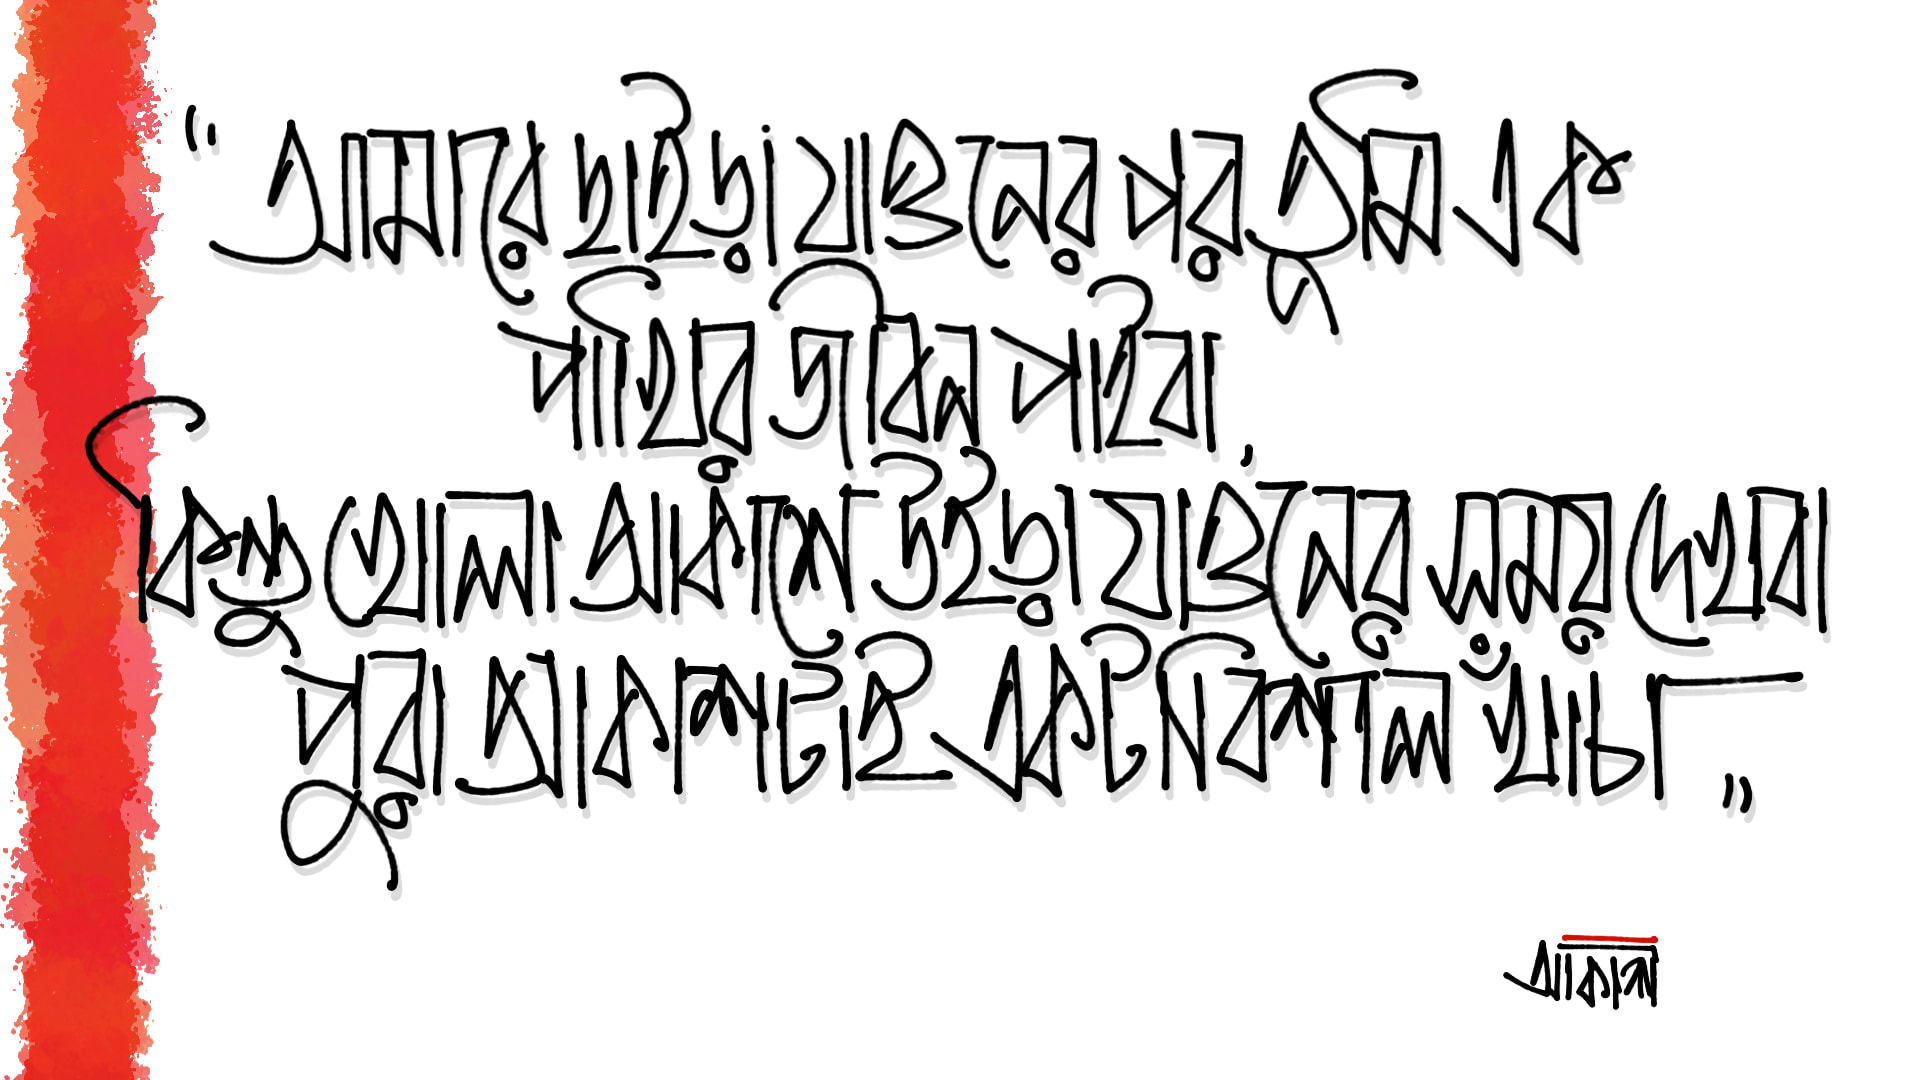 “আমারে ছাইড়া যাওনের পর তুমি এক
পাখির জীবন পাইবা,
কিন্তু খোলা আকাশে উইড়া যাওনের সময় দেখবা
পুরা আকাশটাই একটা বিশাল খাঁচা”
আকাশ